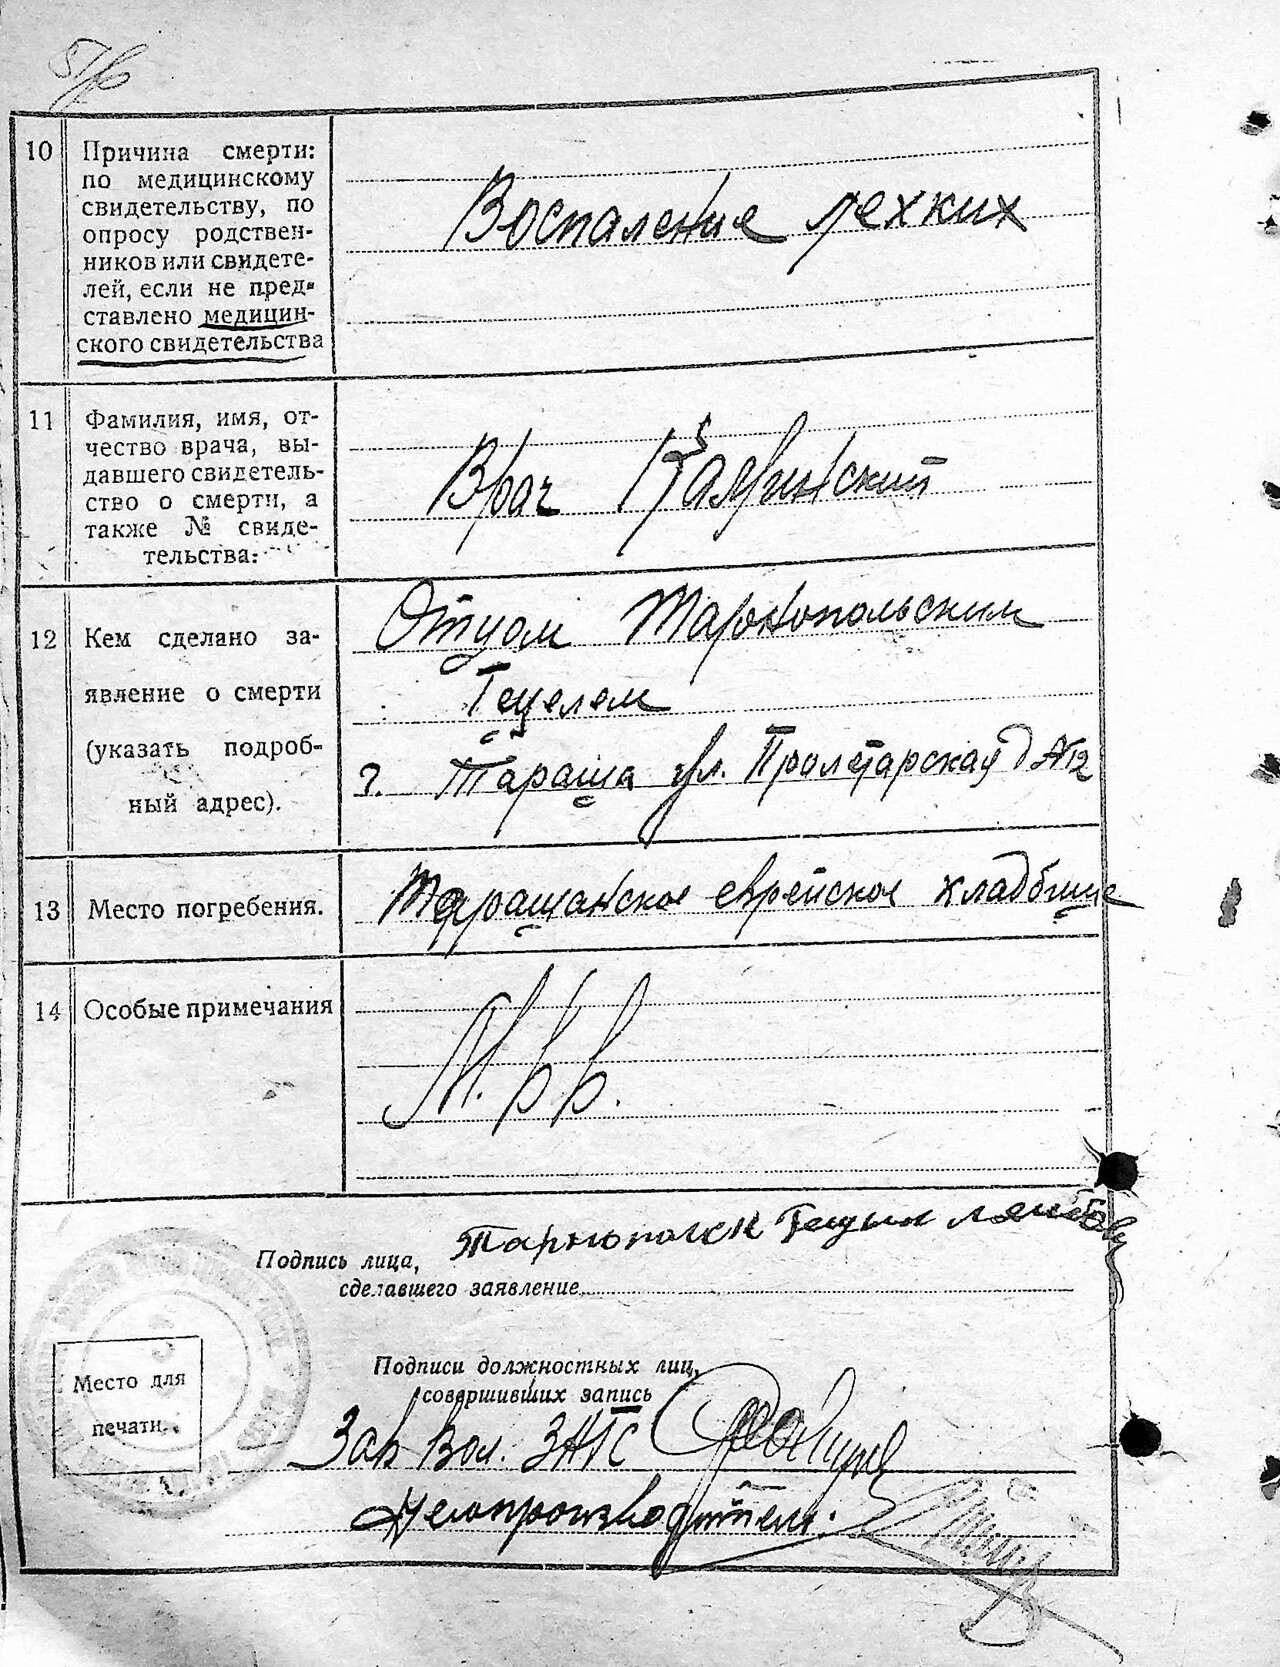 10 Причина смерти:
по медицинскому
свидетельству, по
опросу родствен-
ников или свидете-
лей, если не пред-
ставлено медицин-
ского свидетельства
Воспаление лехких
11 Фамилия, имя, от-
чество врача, вы-
давшего свидетель-
ство о смерти, а
также № свиде-
тельства:
Врач
12 Кем сделано за-
явление о смерти
(указать подроб-
ный адрес).
Отцом Тарнопольским
Гецелем
г. Тараща ул. Пролетарская д №12
13 Место погребения.
Таращанское еврейское кладбище
14 Особые примечания
Подпись лица,
сделавшего заявление
Подписи должностных лиц,
совершивших запись
Место для
печати.
Зав ЗАГС
Делопроизводитель: